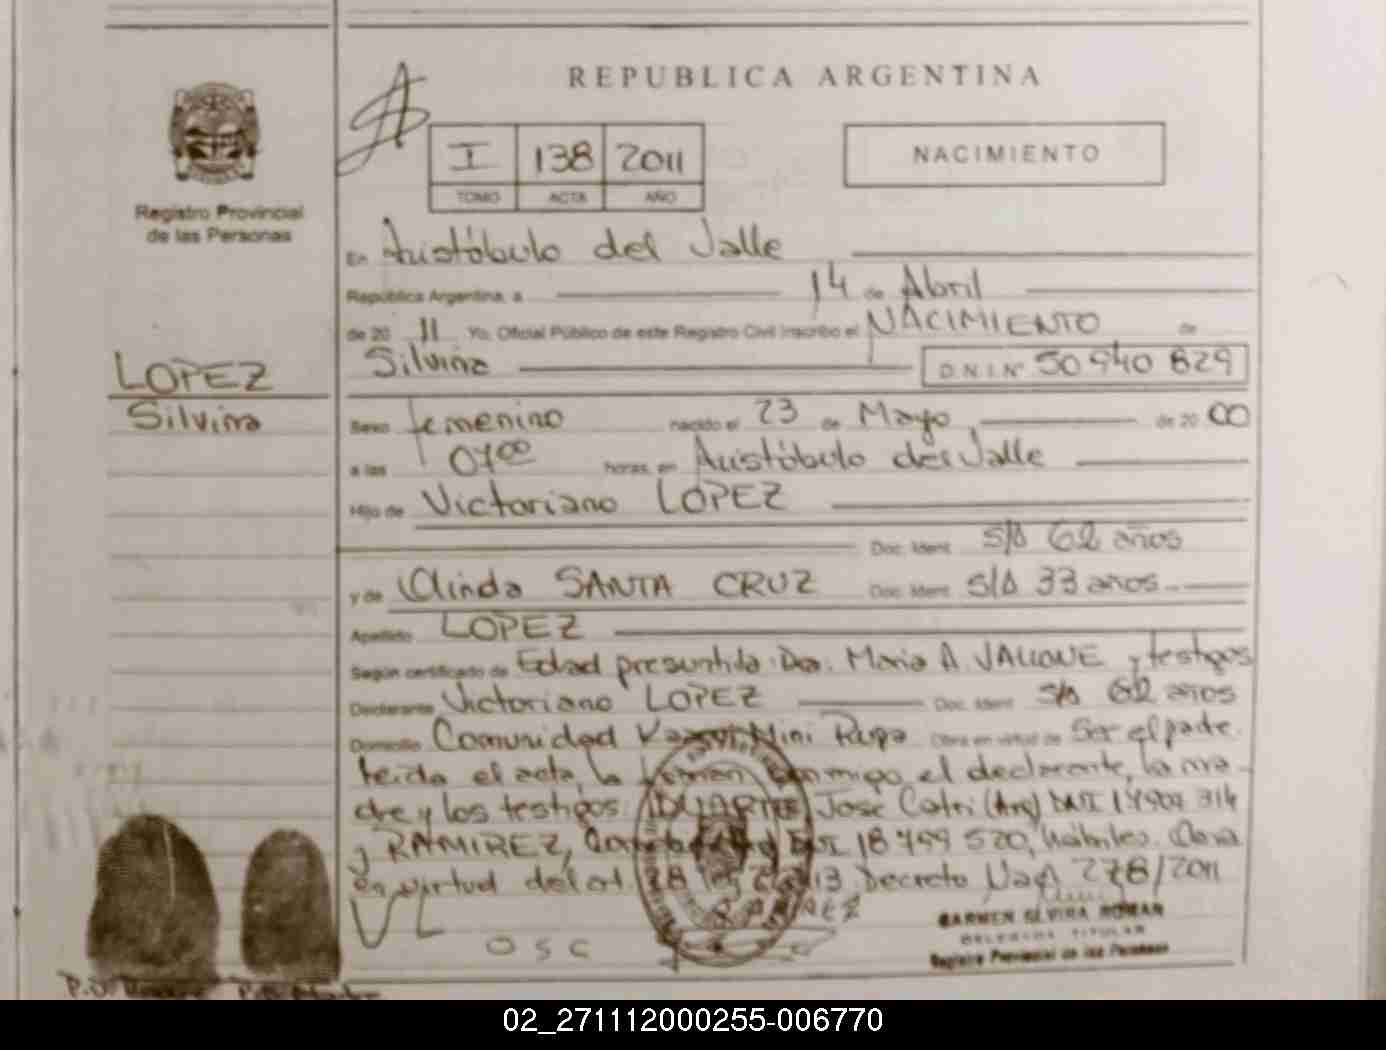 REPUBLICA ARGENTINA
I 138 2011
TOMO ACTA AÑO
NACIMIENTO
Registro Provincial
de las Personas
En Aristóbulo del Valle
República Argentina, a 14 de Abril
de 20 11 Yo, Oficial Público de este Registro Civil inscribo el NACIMIENTO de
Silvina D.N.I. Nº 50 940 829
LOPEZ
Silvina
Sexo femenino nacido el 23 de Mayo de 20 00
a las 07 00 horas, en Aristóbulo del Valle
Hijo de Victoriano LOPEZ
Doc. Ident. S/D 62 años
y de Clinda SANTA CRUZ Doc. Ident. S/D 33 años
Apellido LOPEZ
Según certificado de Edad presuntiva: Dra. Maria A. VALLONE y testigos
Declarante Victoriano LOPEZ Doc. Ident. S/D 62 años
Domicilio Comunidad Mini Obra en virtud de Ser el padre.
leida el acta, la firman conmigo el declarante, la ma-
dre y los testigos: DUARTE, José (Arg) DNI 314
y RAMIREZ, DNI 18 799 520, hábiles. 
en virtud del art. 28 Decreto 278/2011
VL
OSC
RAMIREZ
CARMEN ELVIRA ROMAN
DELEGADA TITULAR
Registro Provincial de las Personas
02_271112000255-006770